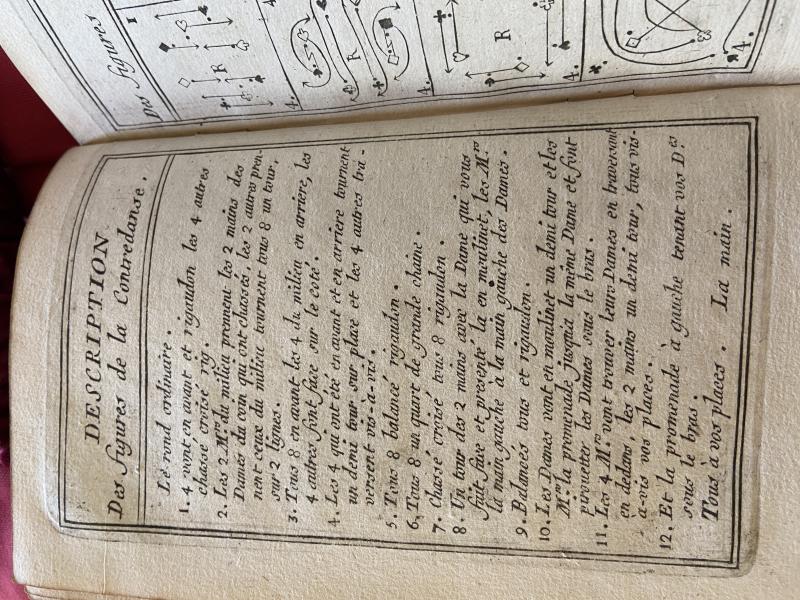 DESCRIPTION
Des figures de la Contredanse.
Le rond ordinaire.
1. 4 vont en avant et rigaudon les 4 autres
chassé croisé rig.
2. Les 2 Mrs. du milieu prennent les 2 mains des
Dames du coin qui ont chassés, les 2 autres pren-
nent ceux du milieu tournent tous 8 un tour,
sur 2 lignes.
3. Tous 8 en avant les 4 du milieu en arriere, les
4 autres font face sur le coté.
4. Les 4 qui ont été en avant et en arriere tournent
un demi tour sur place et les 4 autres tra-
versent vis-à-vis.
5. Tous 8 balancé rigaudon.
6. Tous 8 un quart de grande chaine.
7. Chassé croisé tous 8 rigaudon.
8. Un tour des 2 mains avec la Dame qui vous
fait face et presenté la en moulinet, les Mrs.
la main gauche à la main gauche des Dames.
9. Balancées tous et rigaudon.
10. Les Dames vont en moulinet un demi tour et les
Mrs. la promenade jusqu'à la même Dame et font
pirouetter les Dames sous le bras.
11. Les 4 Mrs. vont trouver leurs Dames en traversant
en dedans, les 2 mains un demi tour, tous vis-
à-vis vos places.
12. Et la promenade à gauche tenant vos Des.
sous le bras.
Tous à vos places. La main.
Des figures
1
R
4.
R
4.
R
4.
4.